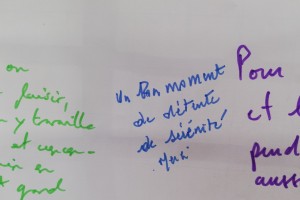 on
plaisir,
y travaille
et
en
grand
un Bon moment
de détente
de sérénité
Merci
Pour
et l
pend
aussi